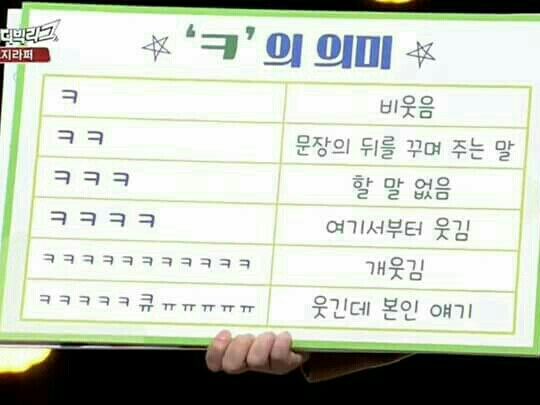 더빅리그
지라퍼
☆ 'ㅋ'의 의미 ☆
ㅋ 비웃음
ㅋㅋ 문장의 뒤를 꾸며 주는 말
ㅋㅋㅋ 할 말 없음
ㅋㅋㅋㅋ 여기서부터 웃김
ㅋㅋㅋㅋㅋㅋㅋㅋㅋㅋㅋ 개웃김
ㅋㅋㅋㅋㅋ큐ㅠㅠㅠㅠㅠ 웃긴데 본인 얘기